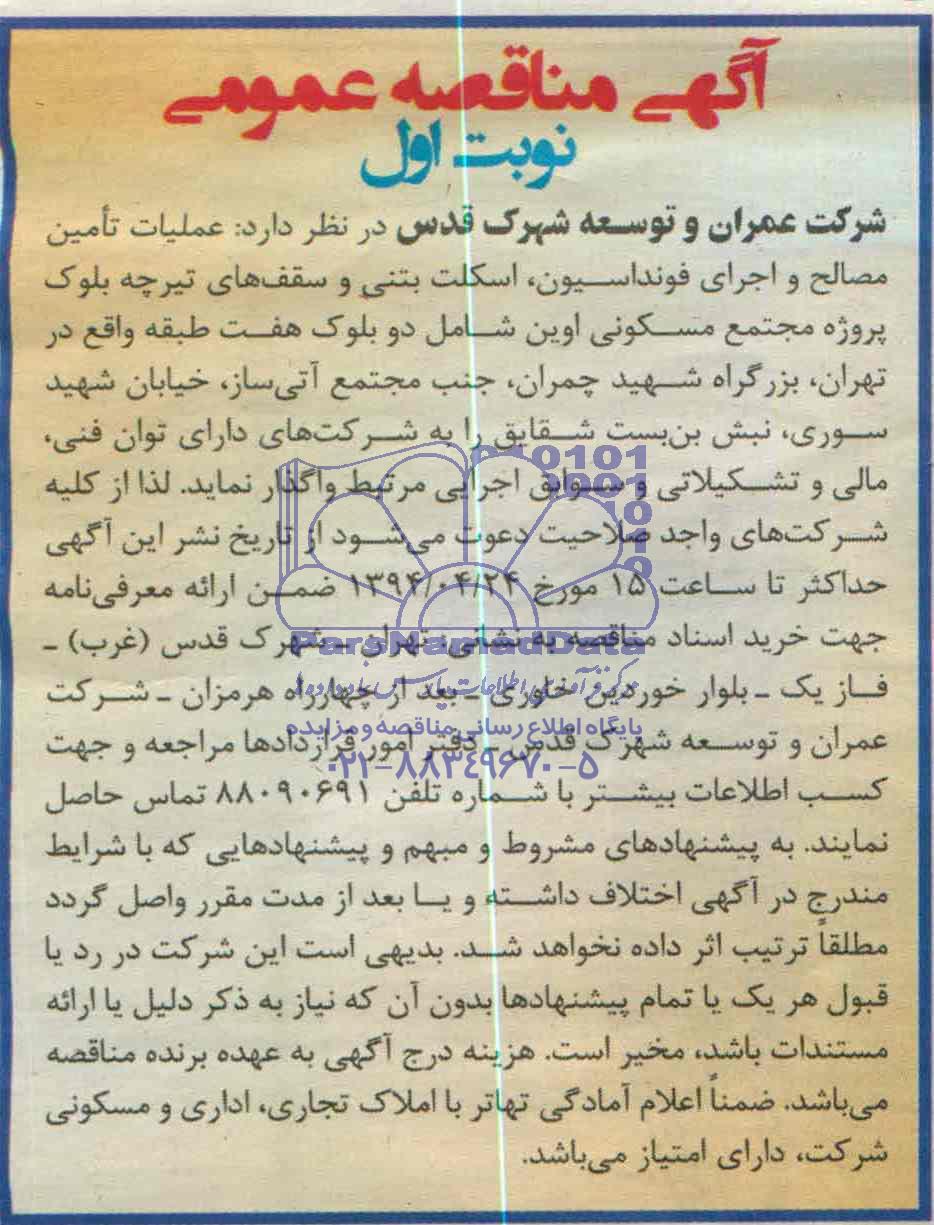 آگهی مناقصه عمومی
نوبت اول
شرکت عمران و توسعه شهرک قدس در نظر دارد: عملیات تأمین
مصالح و اجرای فونداسیون، اسکلت بتنی و سقف‌های تیرچه بلوک
پروژه مجتمع مسکونی اوین شامل دو بلوک هفت طبقه واقع در
تهران، بزرگراه شهید چمران، جنب مجتمع آتی‌ساز، خیابان شهید
سوری، نبش بن‌بست شقایق را به شرکت‌های دارای توان فنی،
مالی و تشکیلاتی و سوابق اجرایی مرتبط واگذار نماید. لذا از کلیه
شرکت‌های واجد صلاحیت دعوت می‌شود از تاریخ نشر این آگهی
حداکثر تا ساعت ۱۵ مورخ ۱۳۹۴/۰۴/۲۴ ضمن ارائه معرفی‌نامه
جهت خرید اسناد مناقصه به نشانی: تهران ـ شهرک قدس (غرب) ـ
فاز یک ـ بلوار خوردین خاوری ـ بعد از چهارراه هرمزان ـ شرکت
عمران و توسعه شهرک قدس ـ دفتر امور قراردادها مراجعه و جهت
کسب اطلاعات بیشتر با شماره تلفن ۸۸۰۹۰۶۹۱ تماس حاصل
نمایند. به پیشنهادهای مشروط و مبهم و پیشنهادهایی که با شرایط
مندرج در آگهی اختلاف داشته و یا بعد از مدت مقرر واصل گردد
مطلقاً ترتیب اثر داده نخواهد شد. بدیهی است این شرکت در رد یا
قبول هر یک یا تمام پیشنهادها بدون آن که نیاز به ذکر دلیل یا ارائه
مستندات باشد، مخیر است. هزینه درج آگهی به عهده برنده مناقصه
می‌باشد. ضمناً اعلام آمادگی تهاتر با املاک تجاری، اداری و مسکونی
شرکت، دارای امتیاز می‌باشد.
ParsNamadData
پایگاه اطلاع رسانی مناقصه و مزایده
۰۲۱-۸۸۳۴۹۶۷۰-۵